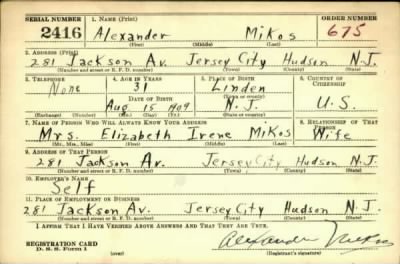 SERIAL NUMBER 1. NAME (Print) ORDER NUMBER
2416 Alexander Mikos 675
(First) (Middle) (Last)
2. ADDRESS (Print)
281 Jackson Av. Jersey City Hudson N.J.
(Number and street or R. F. D. number) (Town) (County) (State)
3. TELEPHONE 4. AGE IN YEARS 5. PLACE OF BIRTH 6. COUNTRY OF CITIZENSHIP
None 31 Linden
DATE OF BIRTH (Town or county)
Aug 15 1909 N.J. U.S.
(Exchange) (Number) (Mo.) (Day) (Yr.) (State or country)
7. NAME OF PERSON WHO WILL ALWAYS KNOW YOUR ADDRESS 8. RELATIONSHIP OF THAT PERSON
Mrs. Elizabeth Irene Mikos Wife
(Mr., Mrs., Miss) (First) (Middle) (Last)
9. ADDRESS OF THAT PERSON
281 Jackson Av. Jersey City Hudson N.J.
(Number and street or R. F. D. number) (Town) (County) (State)
10. EMPLOYER'S NAME
Self
11. PLACE OF EMPLOYMENT OR BUSINESS
281 Jackson Av. Jersey City Hudson N.J.
(Number and street or R. F. D. number) (Town) (County) (State)
I AFFIRM THAT I HAVE VERIFIED ABOVE ANSWERS AND THAT THEY ARE TRUE.
REGISTRATION CARD Alexander Mikos
D. S. S. Form 1 (over) (Registrant's signature)